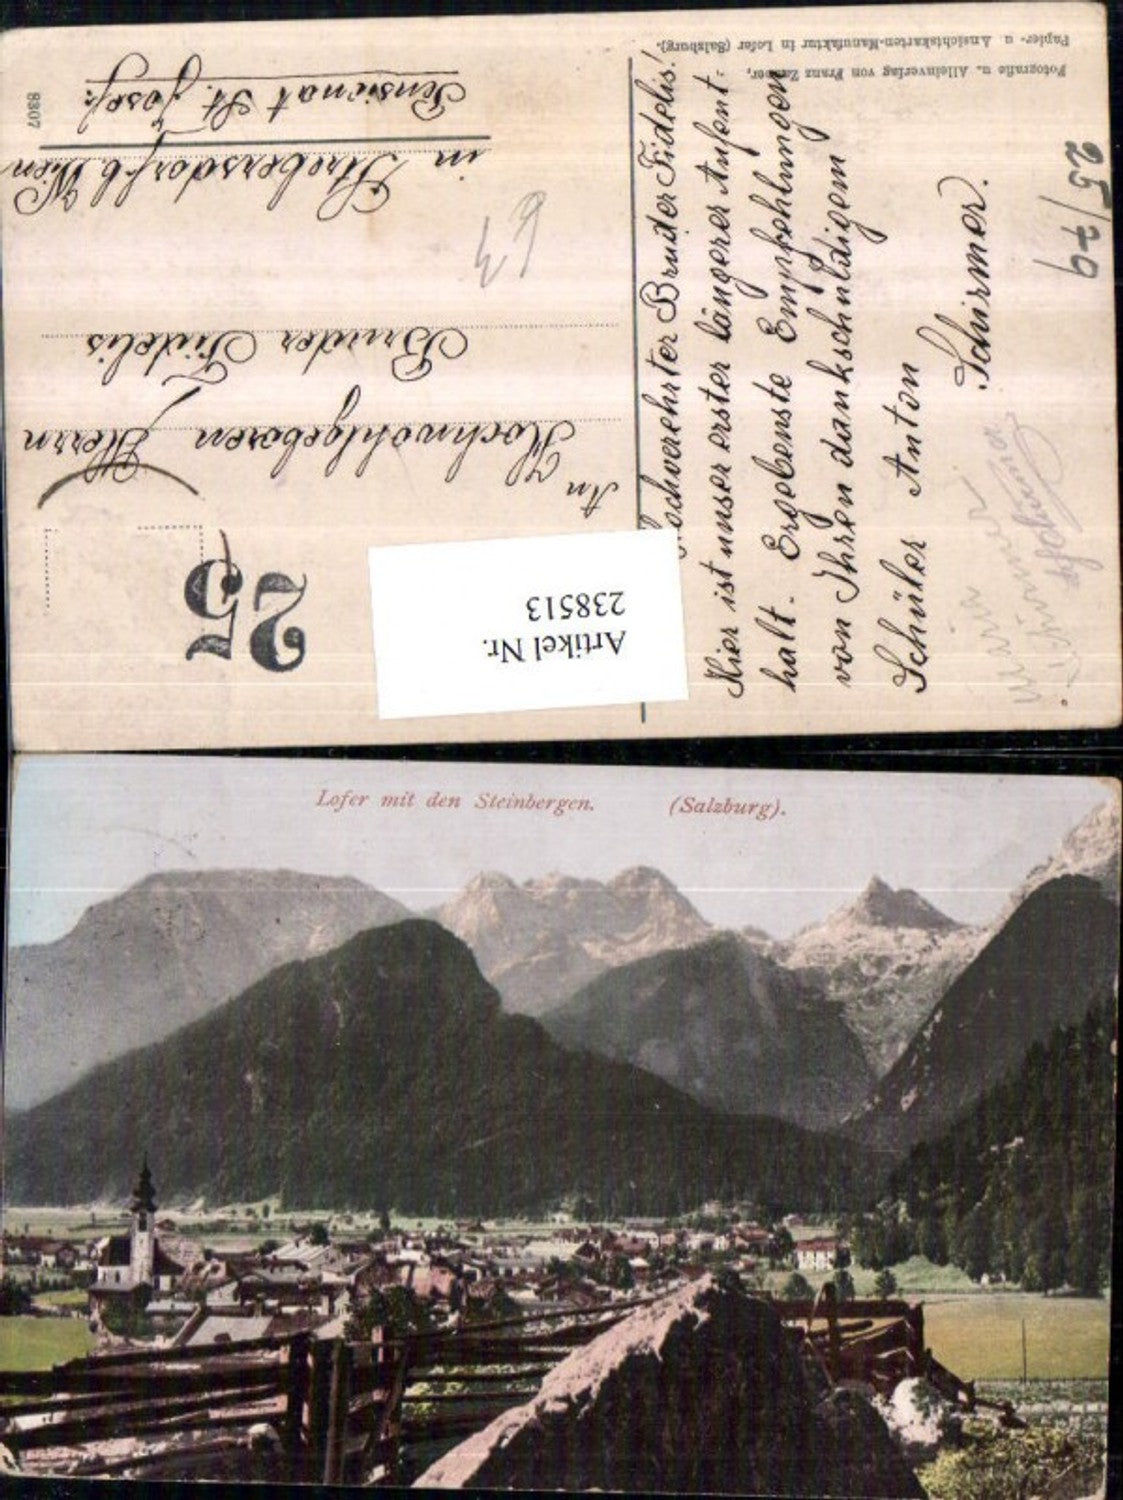 Fotografie u. Alleinverlag von Franz
Papier- u. Ansichtskarten-Manufaktur in Lofer (Salzburg).
Hochverehrter Bruder Fidelis!
Hier ist unser erster längerer Aufent-
halt. Ergebenste Empfehlungen
von Ihren dankschuldigem
Schüler Anton
Schirmer.
25/79
25
An
Hochwohlgeboren Herrn
Bruder Fidelis
in Strebersdorf b. Wien
Pensionat St. Josef.
8307
Artikel Nr.
238513
Lofer mit den Steinbergen. (Salzburg).